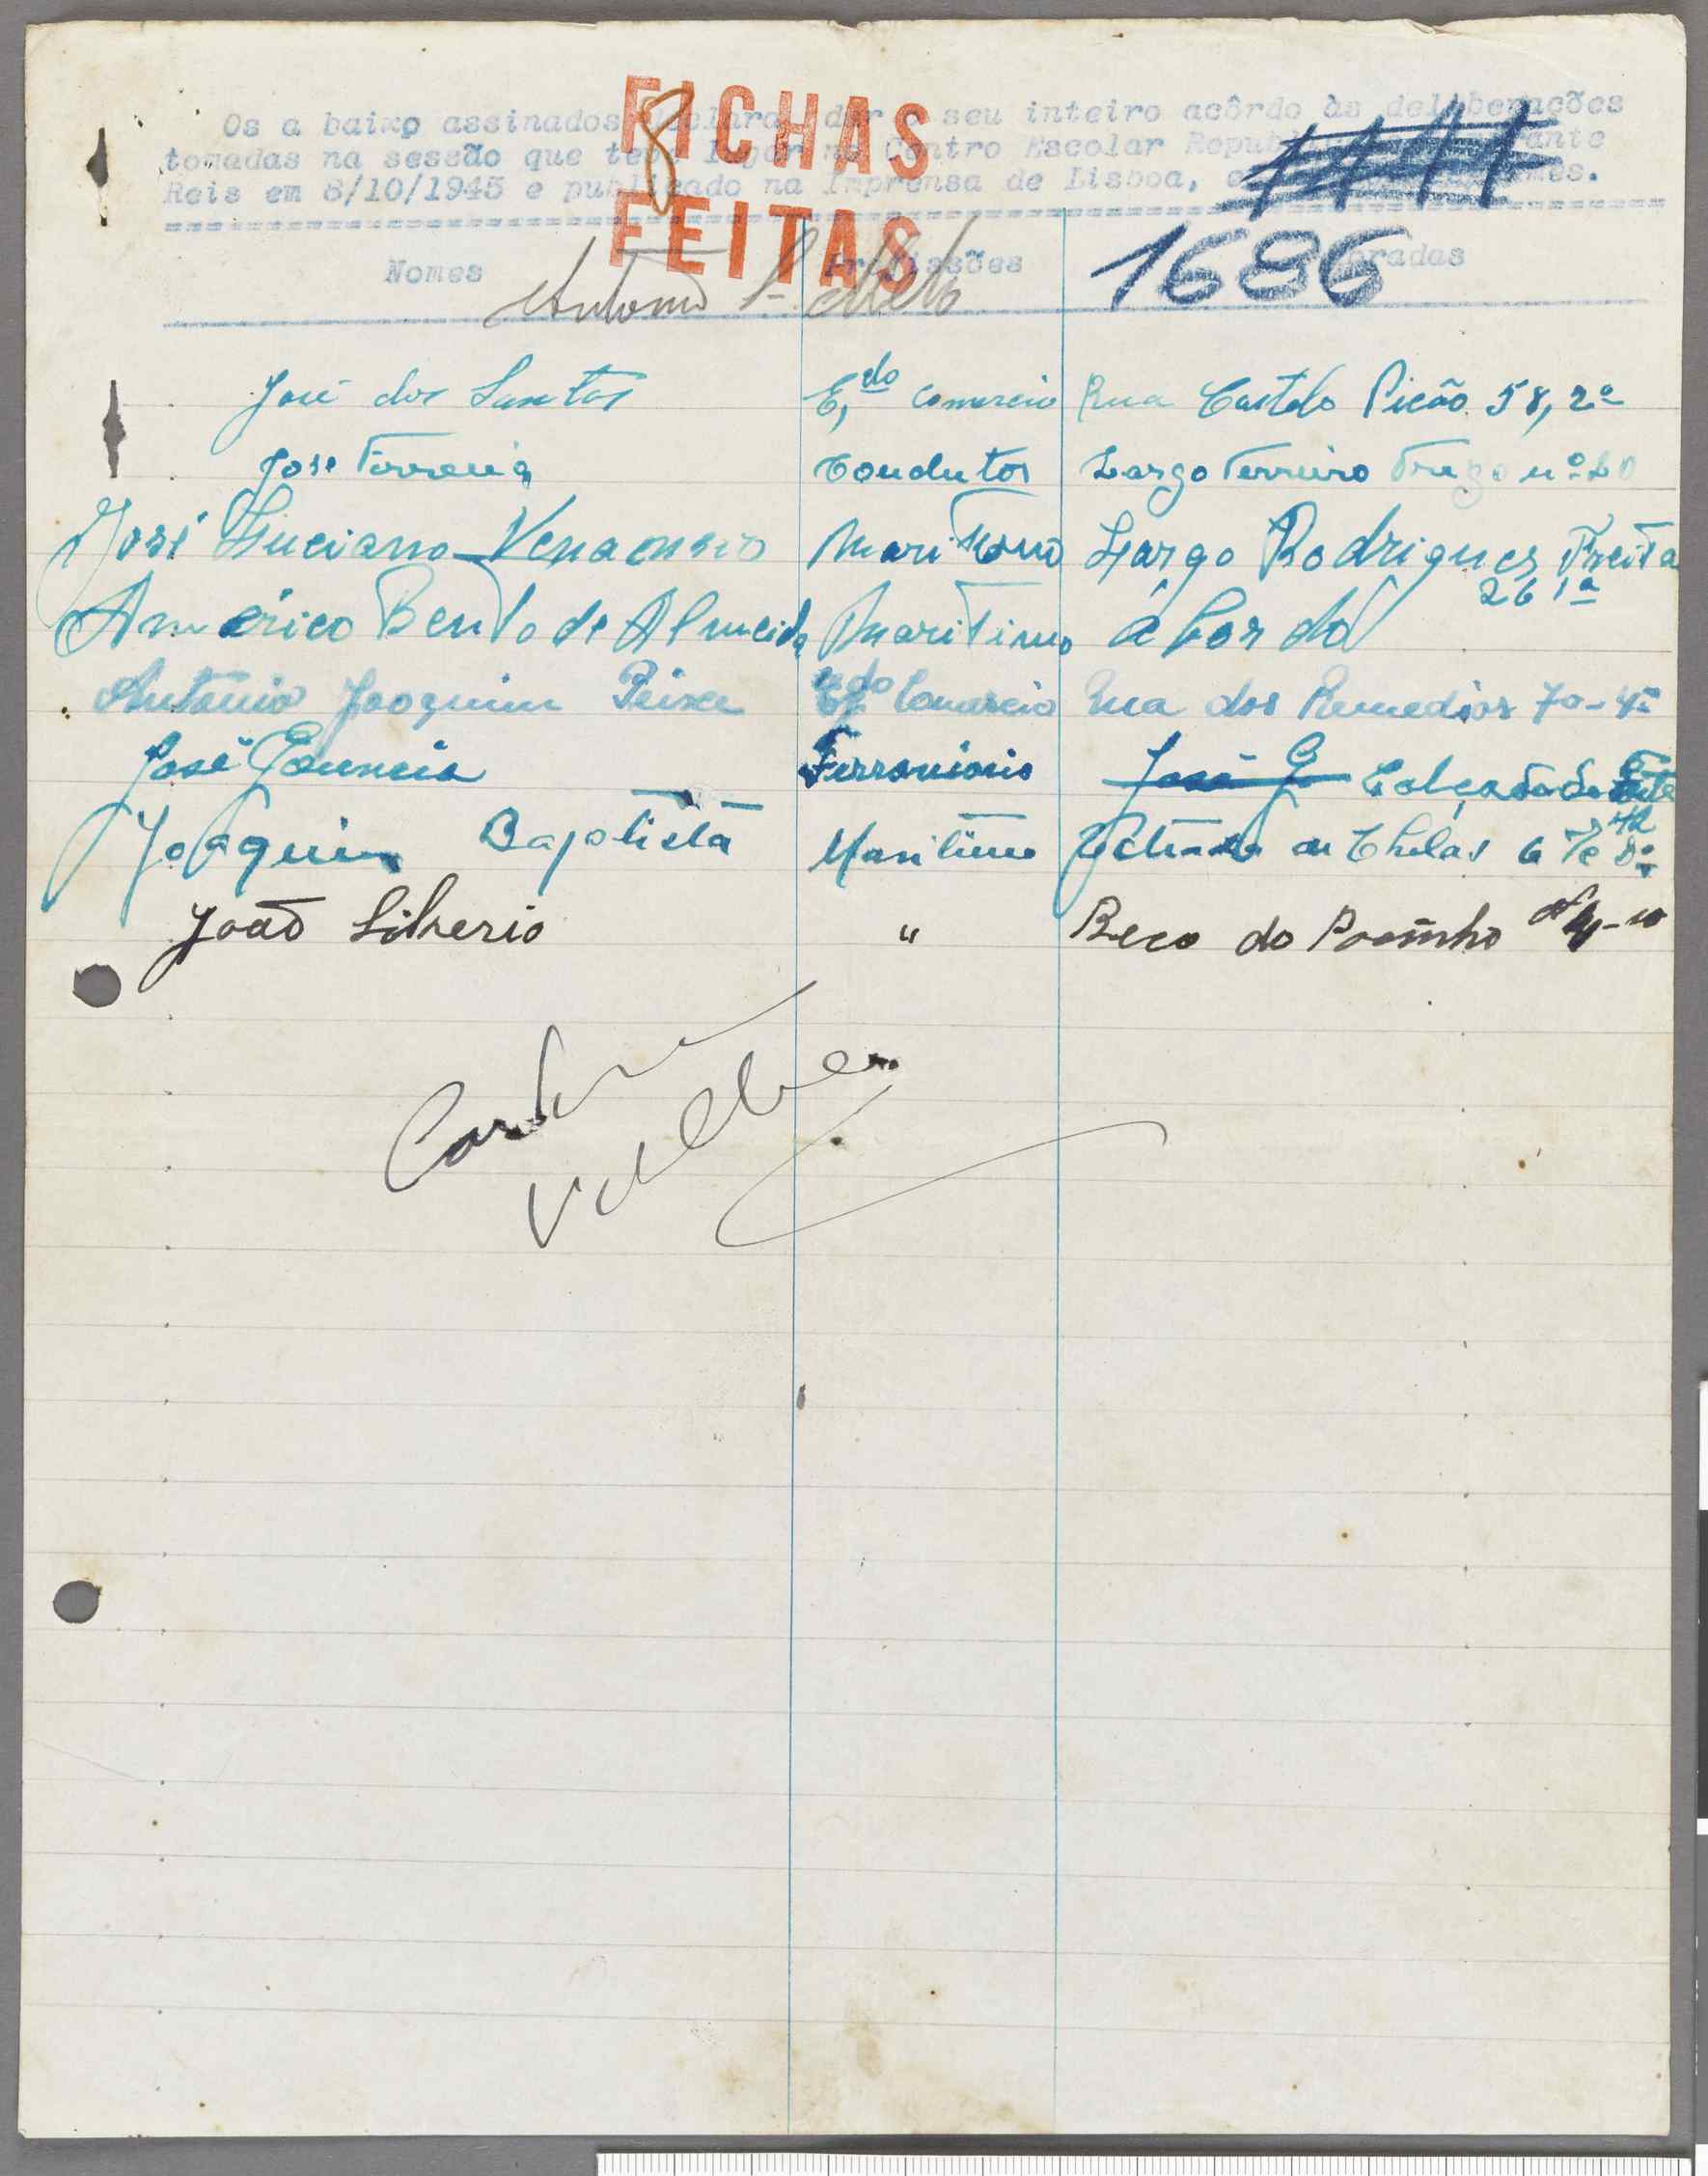 Os a baixo assinados declaram dar seu inteiro acôrdo às deliberações
tomadas na sessão que teve lugar no Centro Escolar Republicano Almirante
Reis em 8/10/1945 e publicado na Imprensa de Lisboa,
FICHAS
FEITAS
8
1111
1686
Nomes Profissões Moradas
Antonio
José dos Santos E,do Comercio Rua Castelo Picão 58, 2º
José Ferreira Condutor Largo Terreiro Trigo nº 20
José Luciano Venancio Maritimo Largo Rodrigues Freita
26 1º
Américo Bento de Almeida Maritimo á bordo
António Joaquim Peixe Edo Comercio Rua dos Remedios 70-4º
José Ferroviario José G Calçada do Forte
Joaquim Baptista Maritimo de Chelas
João Silverio " Beco do Pocinho